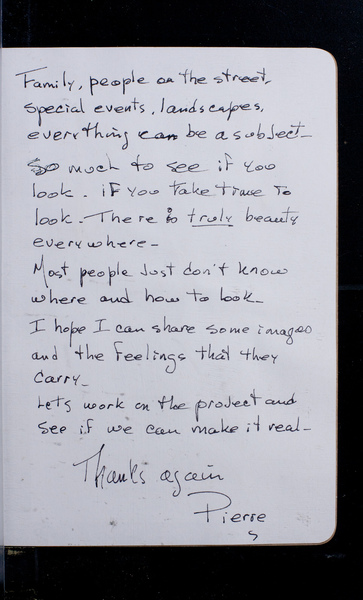 Family, people on the street,
special events, landscapes,
everything can be a subject_
So much to see if you
look. if you take time to
look. There is truly beauty
everywhere_
Most people Just don't know
where and how to look_
I hope I can share some images
and the feelings that they
carry_
Lets work on the project and
see if we can make it real_
Thanks again
Pierre